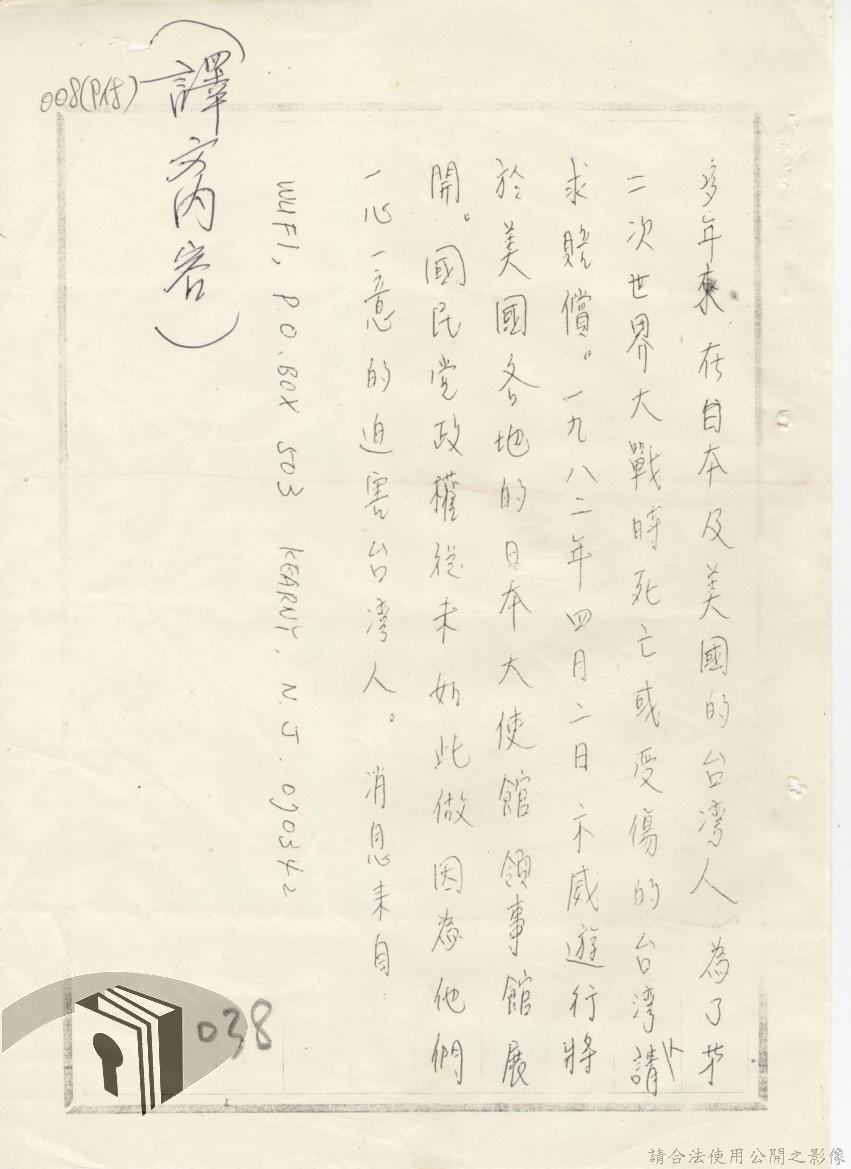 008(P48)
(譯文內容)
多年來在日本及美國的台灣人為了第
二次世界大戰時死亡或受傷的台灣人請
求賠償。一九八二年四月二日示威遊行將
於美國各地的日本大使館領事館展
開。國民党政權從未如此做因為他們
一心一意的迫害台灣人。消息來自:
WUFI, P.O.BOX 503 KEARNY, N.J. 070342
038
請合法使用公開之影像